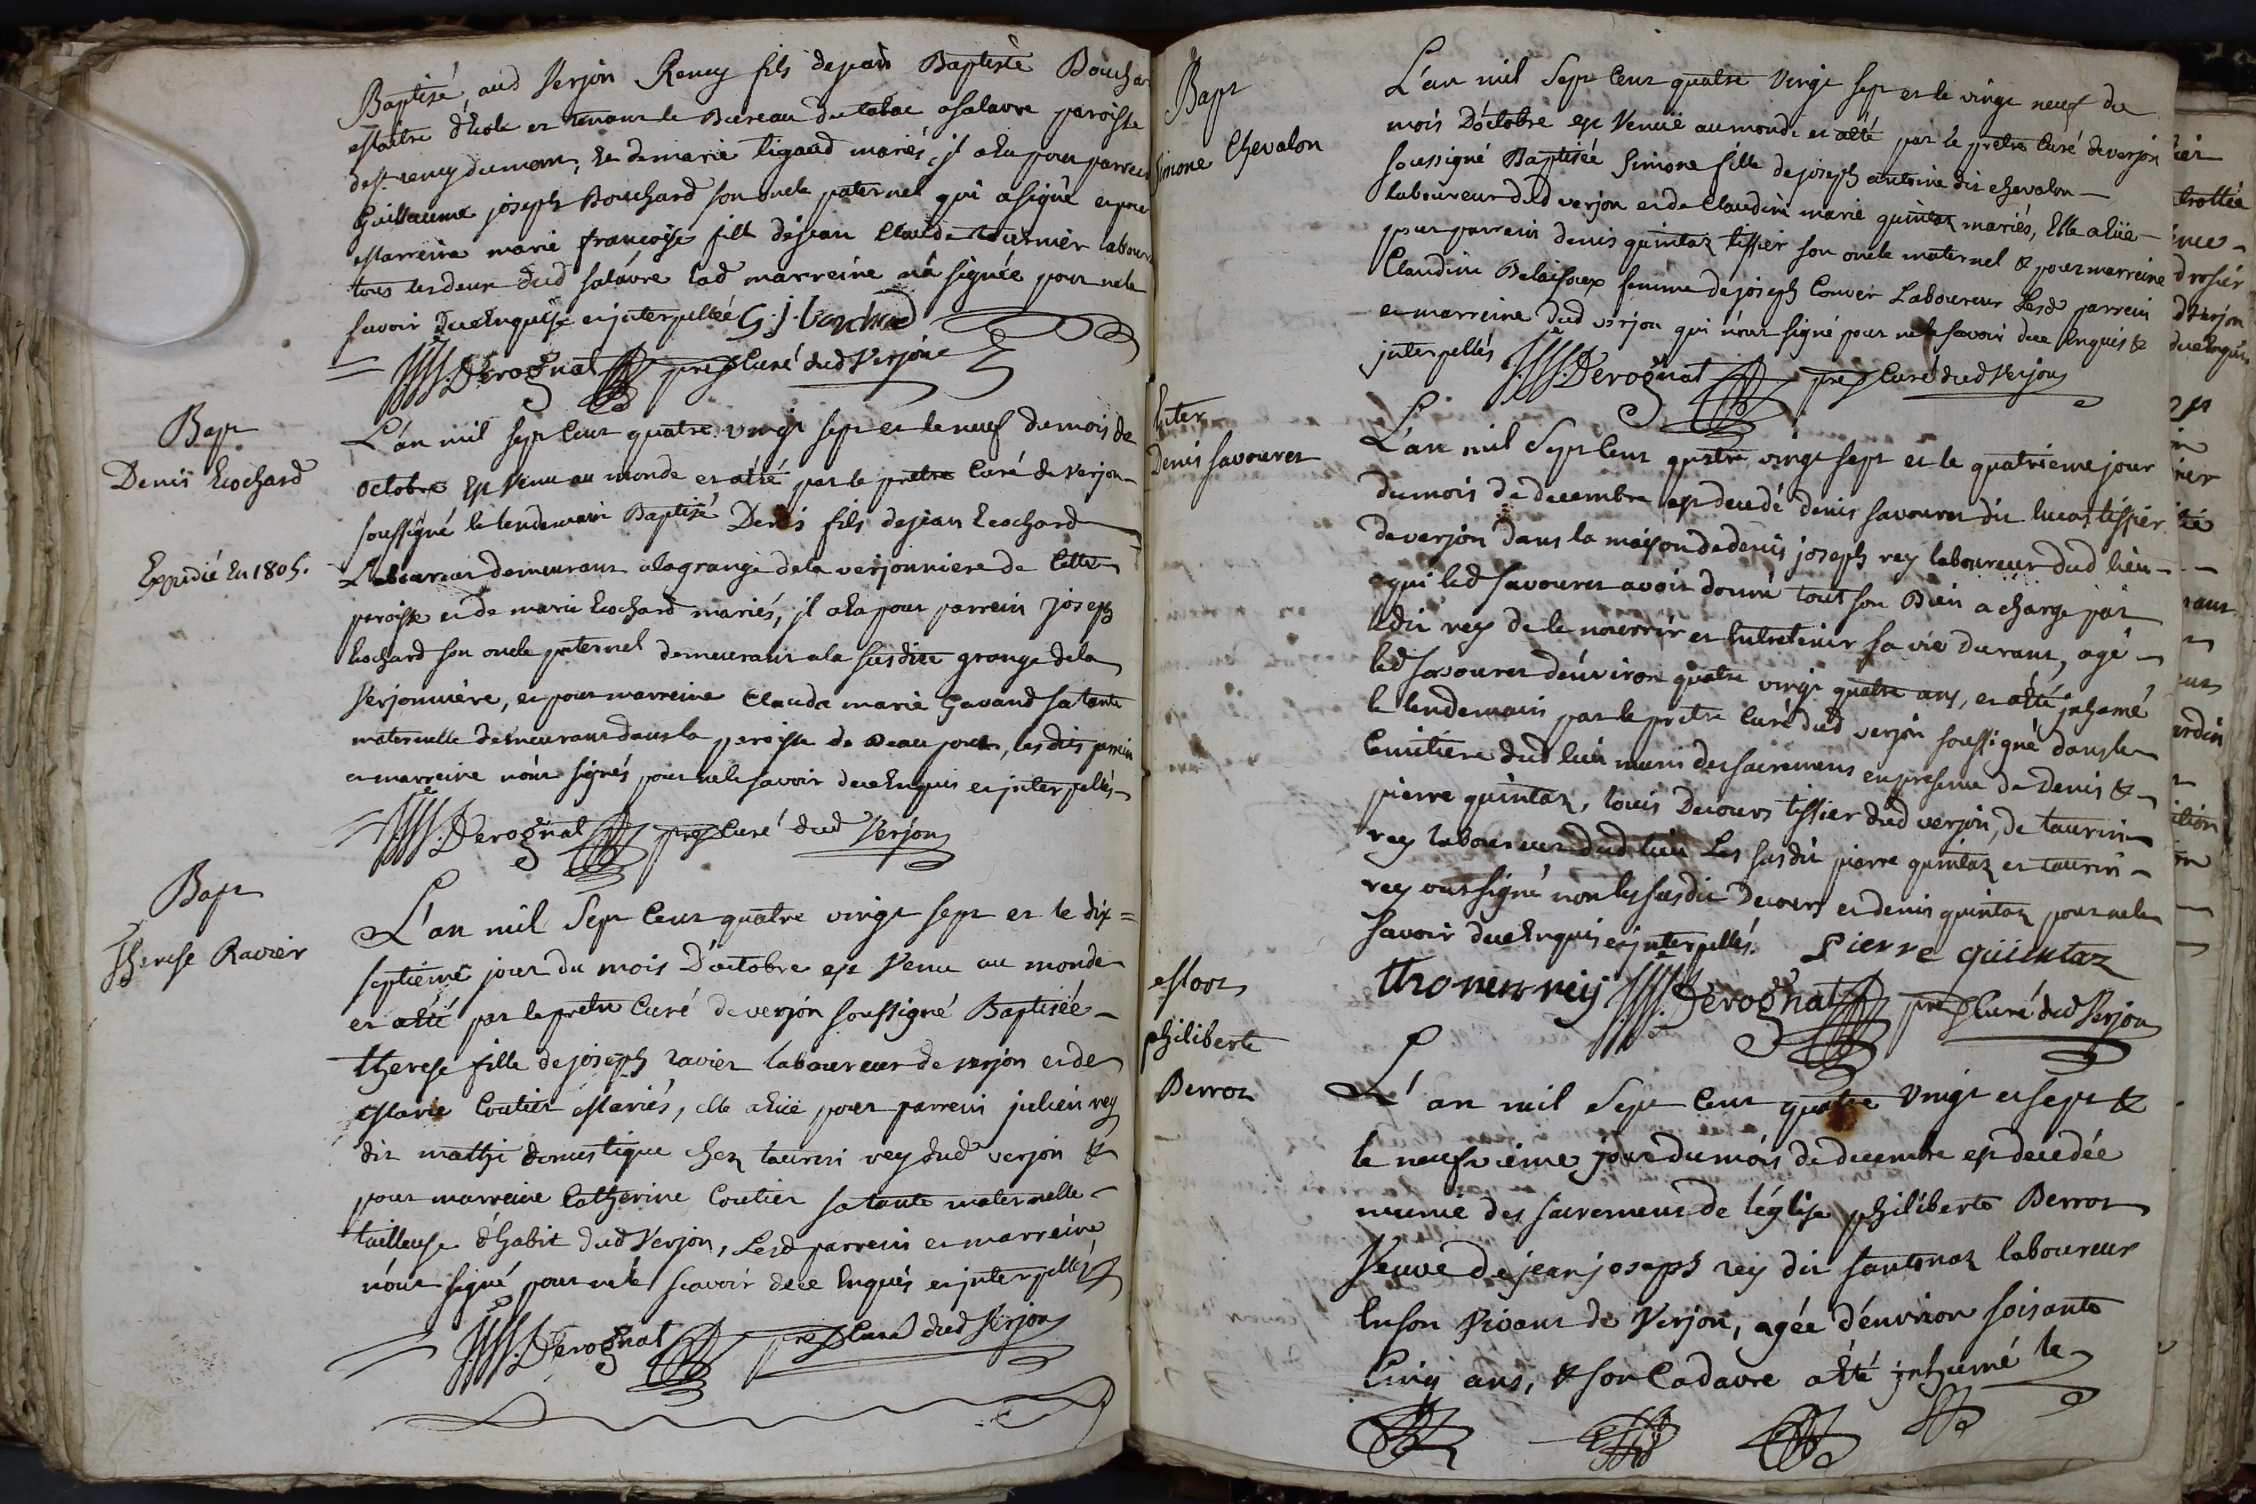 Baptisé aud Verjon Remy fils de jean Baptiste Bouchard
Maitre d'Ecole et tenant le Bureau du tabac a salavre paroisse
de st remy du mont, & de marie Ligaud mariés, il a Eu pour parrein
Guillaume joseph Bouchard son oncle paternel qui a signé et pour
Marreine marie françoise fille de jean Claude tournier labour
tous les deux dud salavre lad marreine n'a signée pour ne le
savoir Duee Enquise et interpellée G. j. bouchard
Derognat pre Curé dud Verjon
Bapt
Denis Cochard
Expedié En 1805.
L'an mil sept Cent quatre vingt sept et le neuf du mois de
octobre Est Venu au monde et a été par le pretre Curé de Verjon
soussigné le lendemain Baptisé Denis fils de jean Cochard
Laboureur demeurant a la grange de la verjonniere de Cette
paroisse et de marie Cochard mariés, il a Eu pour parrein joseph
Cochard son oncle paternel demeurant a la susdite grange de la
Verjonniere, et pour marreine Clauda marie Gavand sa tante
maternelle demeurant dans la paroisse de Beaupont, les dits parrein
et marreine n'ont signés pour ne le savoir duee Enquis et interpellés
Derognat pre Curé dud Verjon
Bapt
Therese Ravier
L'an mil Sept Cent quatre vingt sept et le dix=
septieme jour du mois D'octobre est Venu au monde
et a Eté par le pretre Curé de verjon soussigné Baptisée
therese fille de joseph ravier laboureur de verjon et de
Marie Coutier Mariés, elle a Eüe pour parrein julien rey
dit mathi domestique chez taurin rey dud verjon &
pour marreine Catherine Coutier sa tante maternelle
tailleuse d'habit dud Verjon, Lesd parrein et marreine
n'ont signé pour ne le scavoir duee Enquis et interpellés
Derognat pre Curé dud Verjon
Bapt
Simone Chevalon
L'an mil Sept Cent quatre Vingt sept et le vingt neuf du
mois D'octobre est Venüe au monde et a été par le pretre Curé de verjon
soussigné Baptisée Simone fille de joseph antoine dit chevalon
laboureur dud verjon et de Claudine marie quintaz mariés, Elle a Eüe
pour parrein denis quintaz tissier son oncle maternel & pour marreine
Claudine femme de joseph Convert Laboureur Lesd parrein
et marreine dud verjon qui n'ont signé pour ne le savoir duee Enquis &
interpellés Derognat pre Curé dud Verjon
Enter
Denis savouret
L'an mil Sept Cent quatre vingt sept et le quatrieme jour
du mois de decembre est decedé denis savouret dit lucas tissier
de verjon dans la maison de denis joseph rey laboureur dud lieu
a qui led savouret avoit donné tout son Bien a charge par
ledit rey de le nourrir et Entretenir sa vie durant, agé
led savouret d'environ quatre vingt quatre ans, et a été inhumé
le lendemain par le pretre Curé dud verjon soussigné dans le
Cimitiere dud lieu muni des sacremens en presence de Denis &
pierre quintaz, louis Decours tissier dud verjon, de taurin
rey laboureur dud lieu Les susdit pierre quintaz et taurin
rey ont signé non les susdit Decours et denis quintaz pour ne le
savoir duee Enquis et interpellés. Pierre quintaz
rey Derognat pre Curé dud Verjon
Mort
philiberte
Berrot
L'an mil Sept Cent quatre Vingt et sept &
le neufvieme jour du mois de decembre est decedée
munie des sacremens de l'église philiberte Berrot
Veuve de jean joseph rey dit santonaz laboureur
En son Vivant de Verjon, agée d'environ soisante
Cinq ans, & son Cadavre a Eté inhumé le